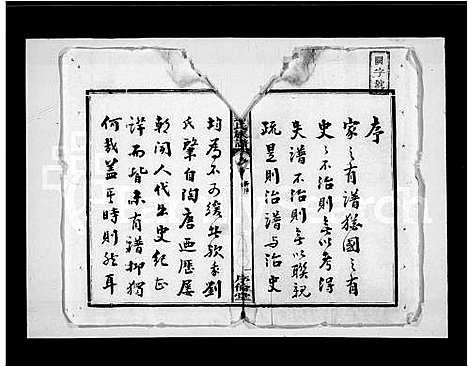 圖字號
序
家之有譜猶國之有
史之不治則無以考得
失譜不治則無以聯親
疏是則治譜與治史
均為不可緩也我劉
氏肇自陶唐迺歷屢
朝聞人代出史紀正
詳而皆未有譜抑獨
何哉蓋平時則然耳